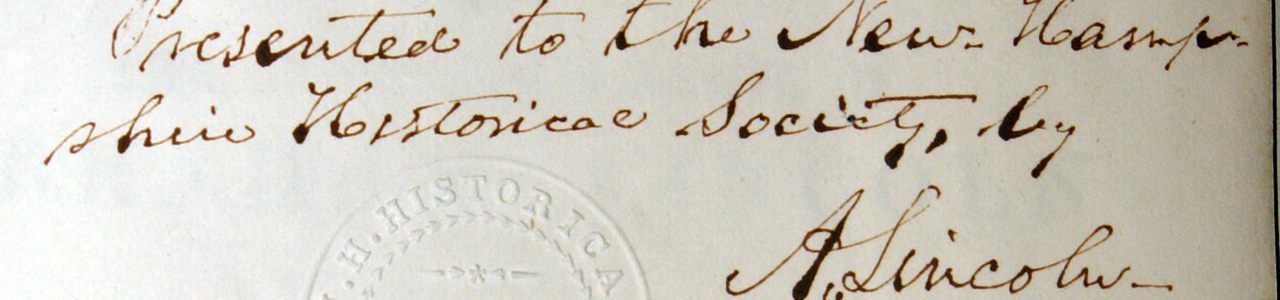 Presented to the New-Hamp-
shire Historical Society, by
.H. HISTORICA
A. Lincoln